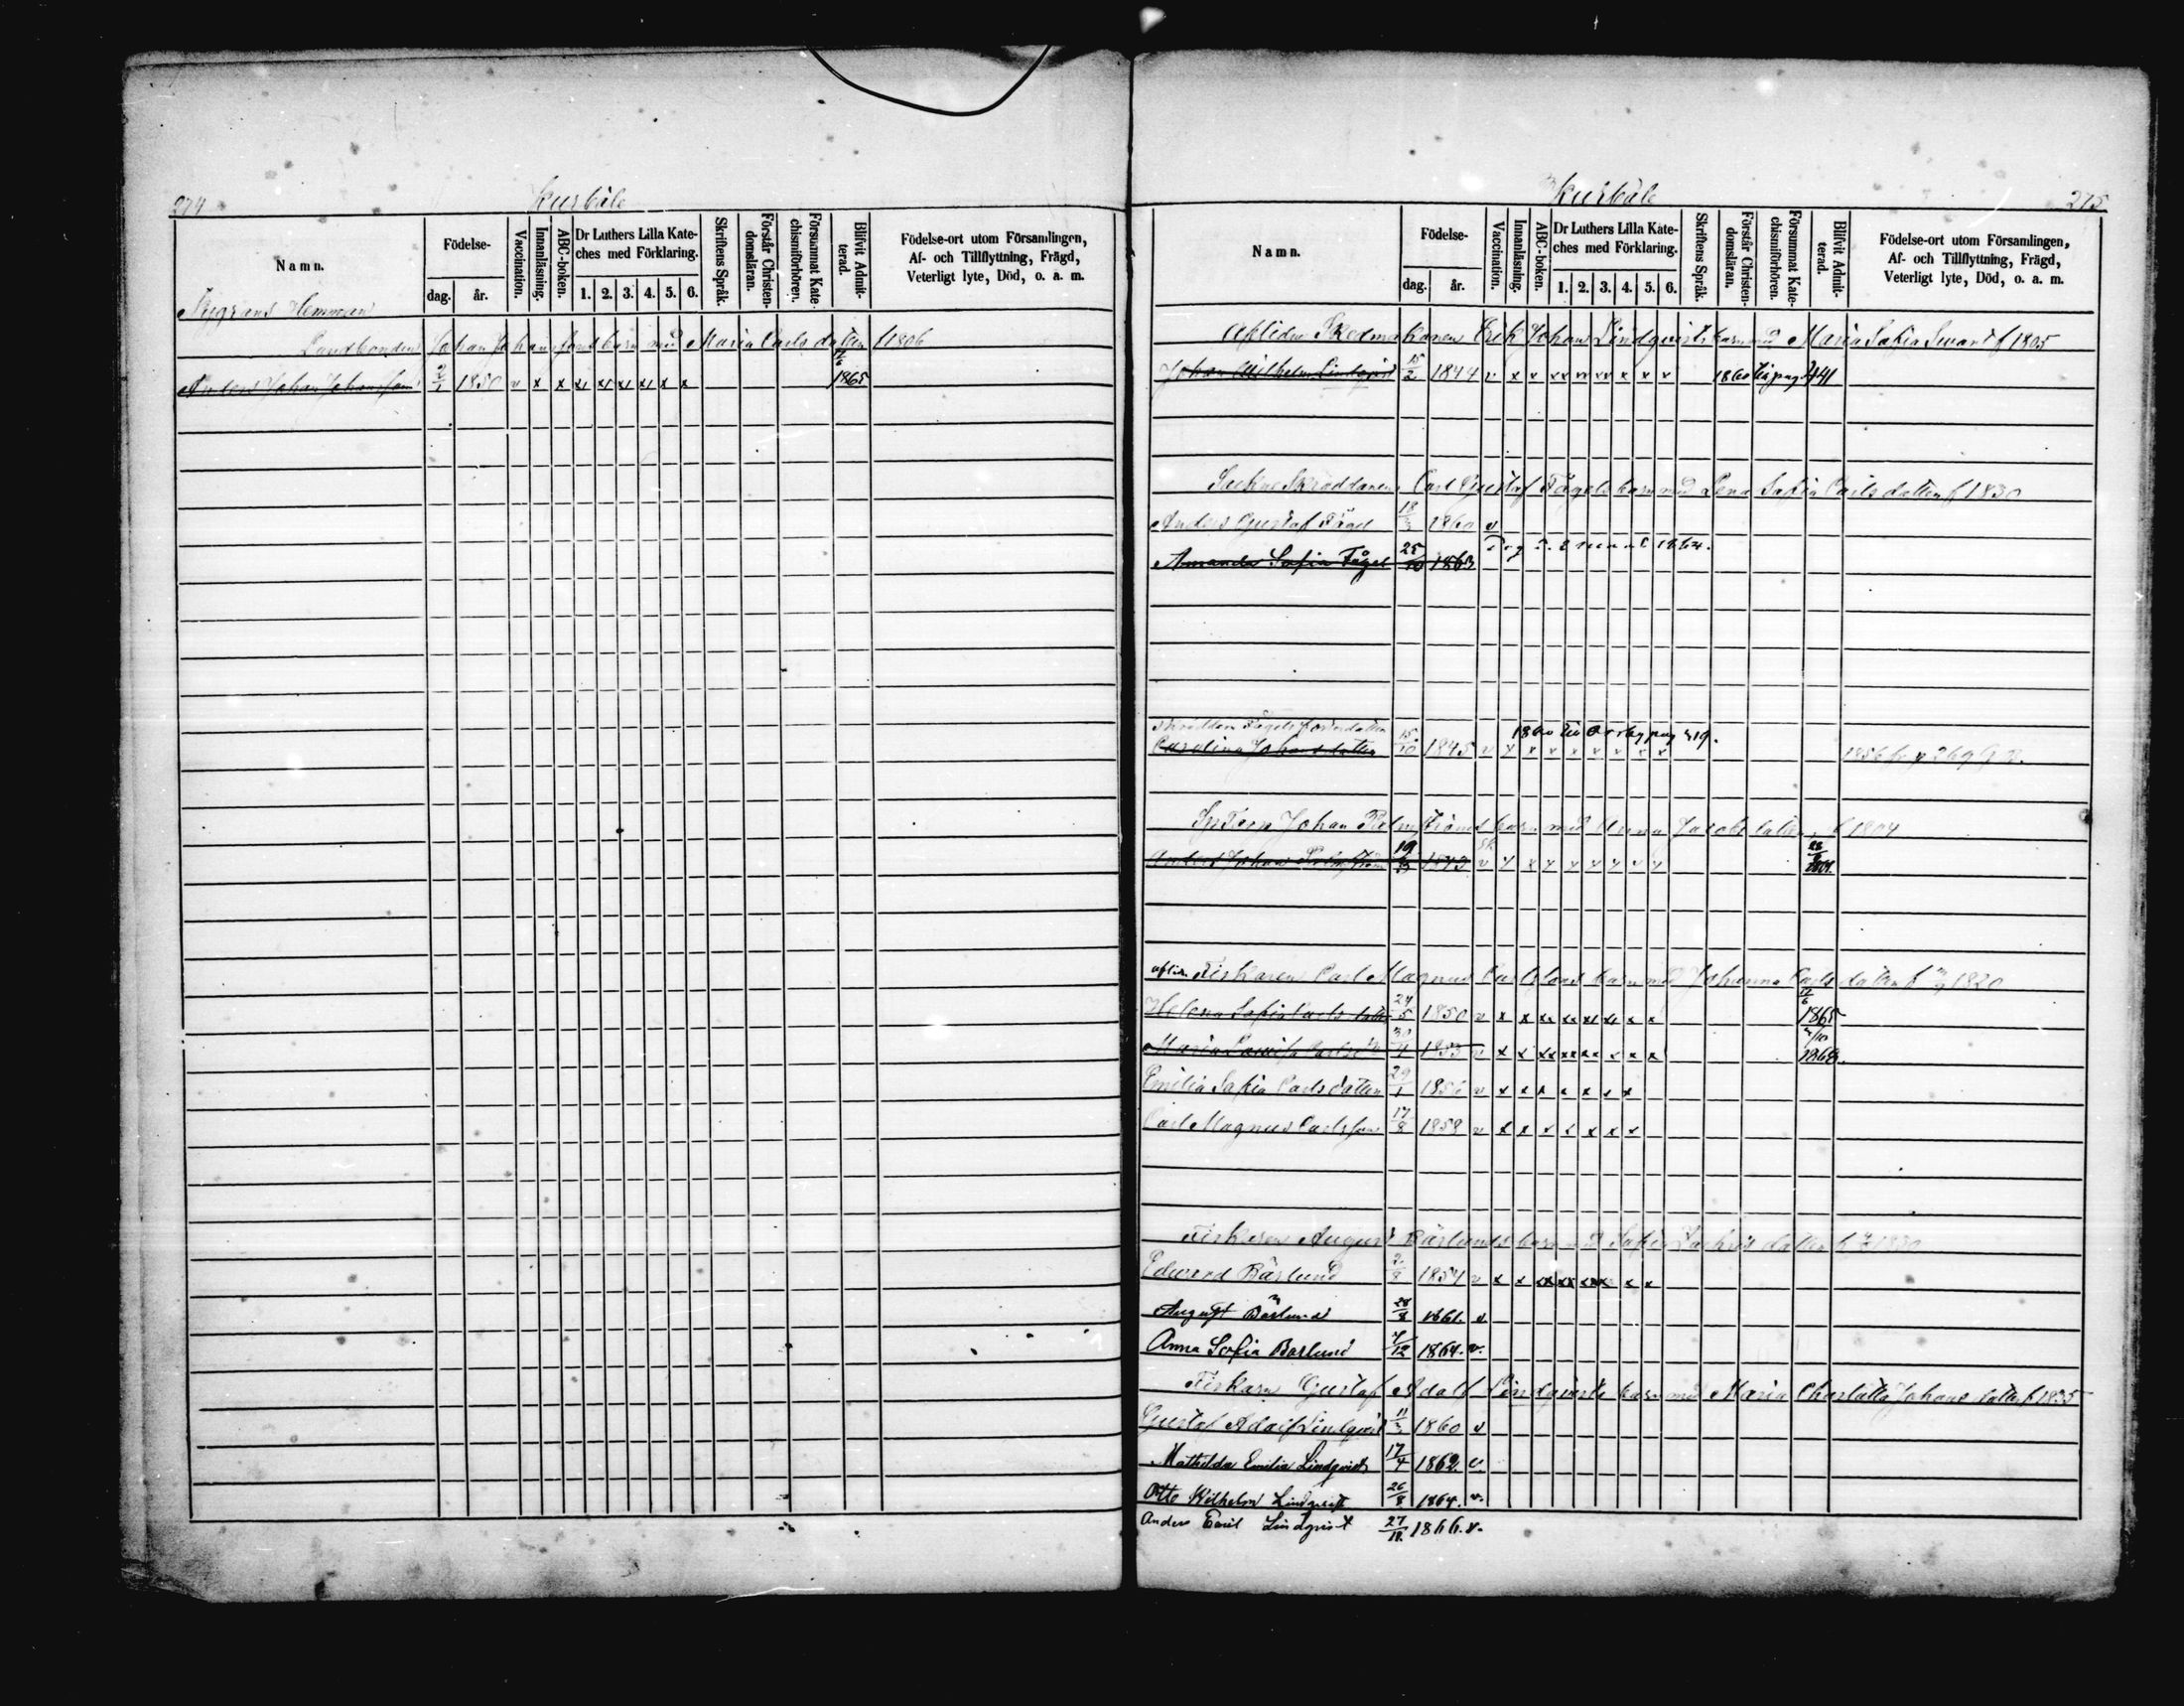 274
Kusböle
Namn.
Födelse-
dag.
år.
Vaccination.
Innanläsning.
ABC-boken.
Dr Luthers Lilla Kate-
ches med Förklaring.
1. 2. 3. 4. 5. 6.
Skriftens Språk.
Förstår Christen-
domsläran.
Försummat Kate-
chismiförhören.
Blifvit Admit-
terad.
Födelse-ort utom Församlingen,
Af- och Tillflyttning, Frägd,
Veterligt lyte, Död, o. a. m.
Nygrans Hemman
Landbonden Johan Johanssons barn med Maria Carlsdatter f 1806
Anders Johan Johansson 2/1 1850 v x x x x x x x x 1865
Kusböle
275
Namn.
Födelse-
dag.
år.
Vaccination.
Innanläsning.
ABC-boken.
Dr Luthers Lilla Kate-
ches med Förklaring.
1. 2. 3. 4. 5. 6.
Skriftens Språk.
Förstår Christen-
domsläran.
Försummat Kate-
chismiförhören.
Blifvit Admit-
terad.
Födelse-ort utom Församlingen,
Af- och Tillflyttning, Frägd,
Veterligt lyte, Död, o. a. m.
Aflidne Skedmakaren Erik Johan Lindqvists barn med Maria Safia Svan f 1805
Johan Wilhelm Lindqvist 15/2 1844 v x v vv vv vv v v v 1860 till pag
Skräddaren Carl Gustaf Fågels barn med Lena Safia Carlsdatter f 1830
Anders Gustaf Fågel 1860 v
Amanda Sofia Fågel 25/10 1863 1864.
Skräddar Fågels
Carolina Johansdatter 15/10 1845 v x x v v v v v v 1860 till pag 419.
1856 fr p 269
Johan Palmströms barn med Anna Jacobsdatter f 1804
Anders Johan Palmström 1843 v x x x x x x v x
aflidn. Fiskaren Carl Magnus Carlssons barn med Johanna Carlsdatter f 1820
Helena Safia Carlsdatter 24/5 1850 v x x xx xx xx xx x x 1865
Maria Lovisa Carlsd 30/4 1853 v x x xx xx xx x x x 1868.
Emilia Safia Carlsdatter 29/1 1856 v x x x x x x x
Carl Magnus Carlsson 17/8 1859 v x x x x x x x
Fiskaren August Bärlunds barn med Safia datter f 1830
Edward Bärlund 2/8 1854 v x x xx xx xxx x x
August Bärlund 28/8 1861. v
Anna Sofia Barlund 4/12 1864. v.
Fiskarn Gustaf Adolf Lindqvists barn med Maria Charlotta Johansdatter f 1835
Gustaf Adolf Lindqvist 1860 v
Mathilda Emilia Lindqvist 17/4 1862. v.
Otto Wilhelm Lindqvist 26/8 1864. v.
Anders Emil Lindqvist 27/12. 1866. v.